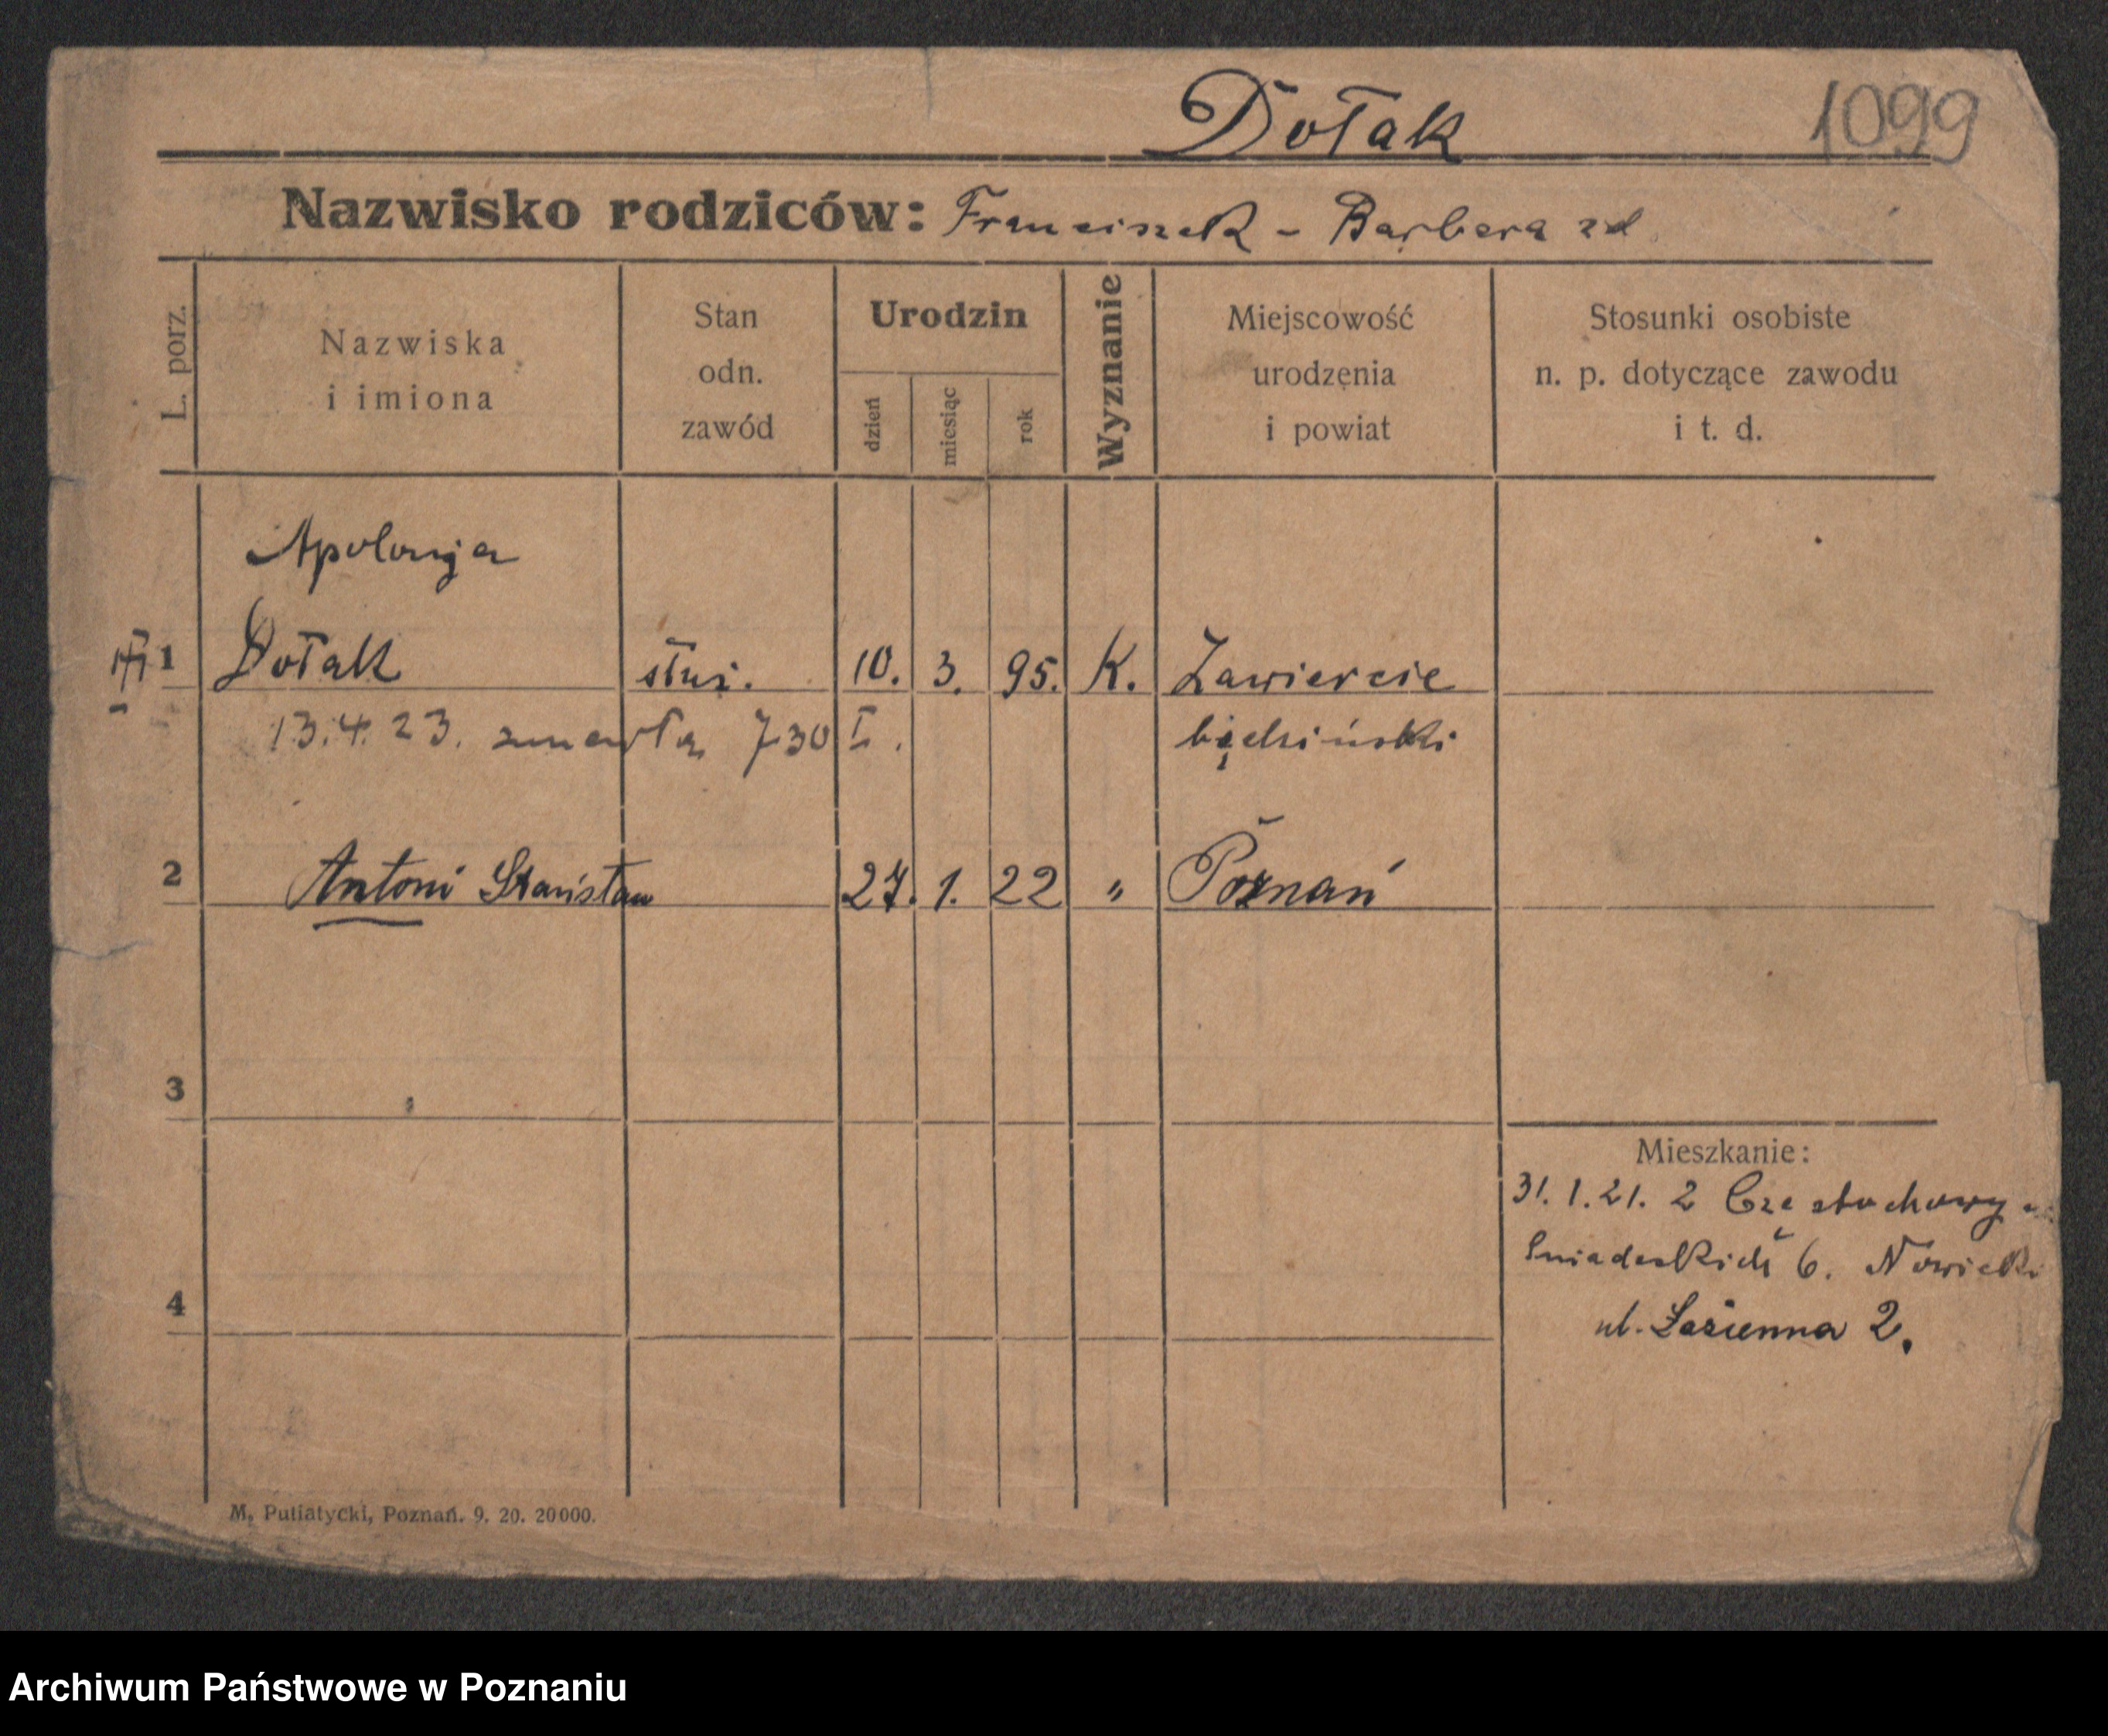 Dołak 1099
Nazwisko rodziców: Franciszek - Barbara zd
L. porz.
Nazwiska
i imiona
Stan
odn.
zawód
Urodzin
dzień
miesiąc
rok
Wyznanie
Miejscowość
urodzenia
i powiat
Stosunki osobiste
n. p. dotyczące zawodu
i t. d.
Apolonja
1 Dołak służ. 10. 3. 95. K. Zawiercie
13.4.23. zmarła 730 I. będziński
2 Antoni Stanisław 27. 1. 22 " Poznań
3
Mieszkanie:
31. 1. 21. z Częstochowy
Śniadeckich 6. Nowicki
4
ul. Łazienna 2.
M. Putiatycki, Poznań. 9. 20. 20000.
Archiwum Państwowe w Poznaniu